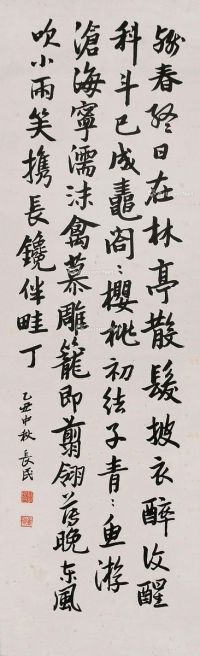 残春终日在林亭散髮披衣醉復醒
科斗已成黽閤〻櫻桃初结子青〻魚游
滄海寧濡沫禽慕雕籠即翦翎薄晚东風
吹小雨笑携長鑱伴畦丁
乙丑中秋 長民